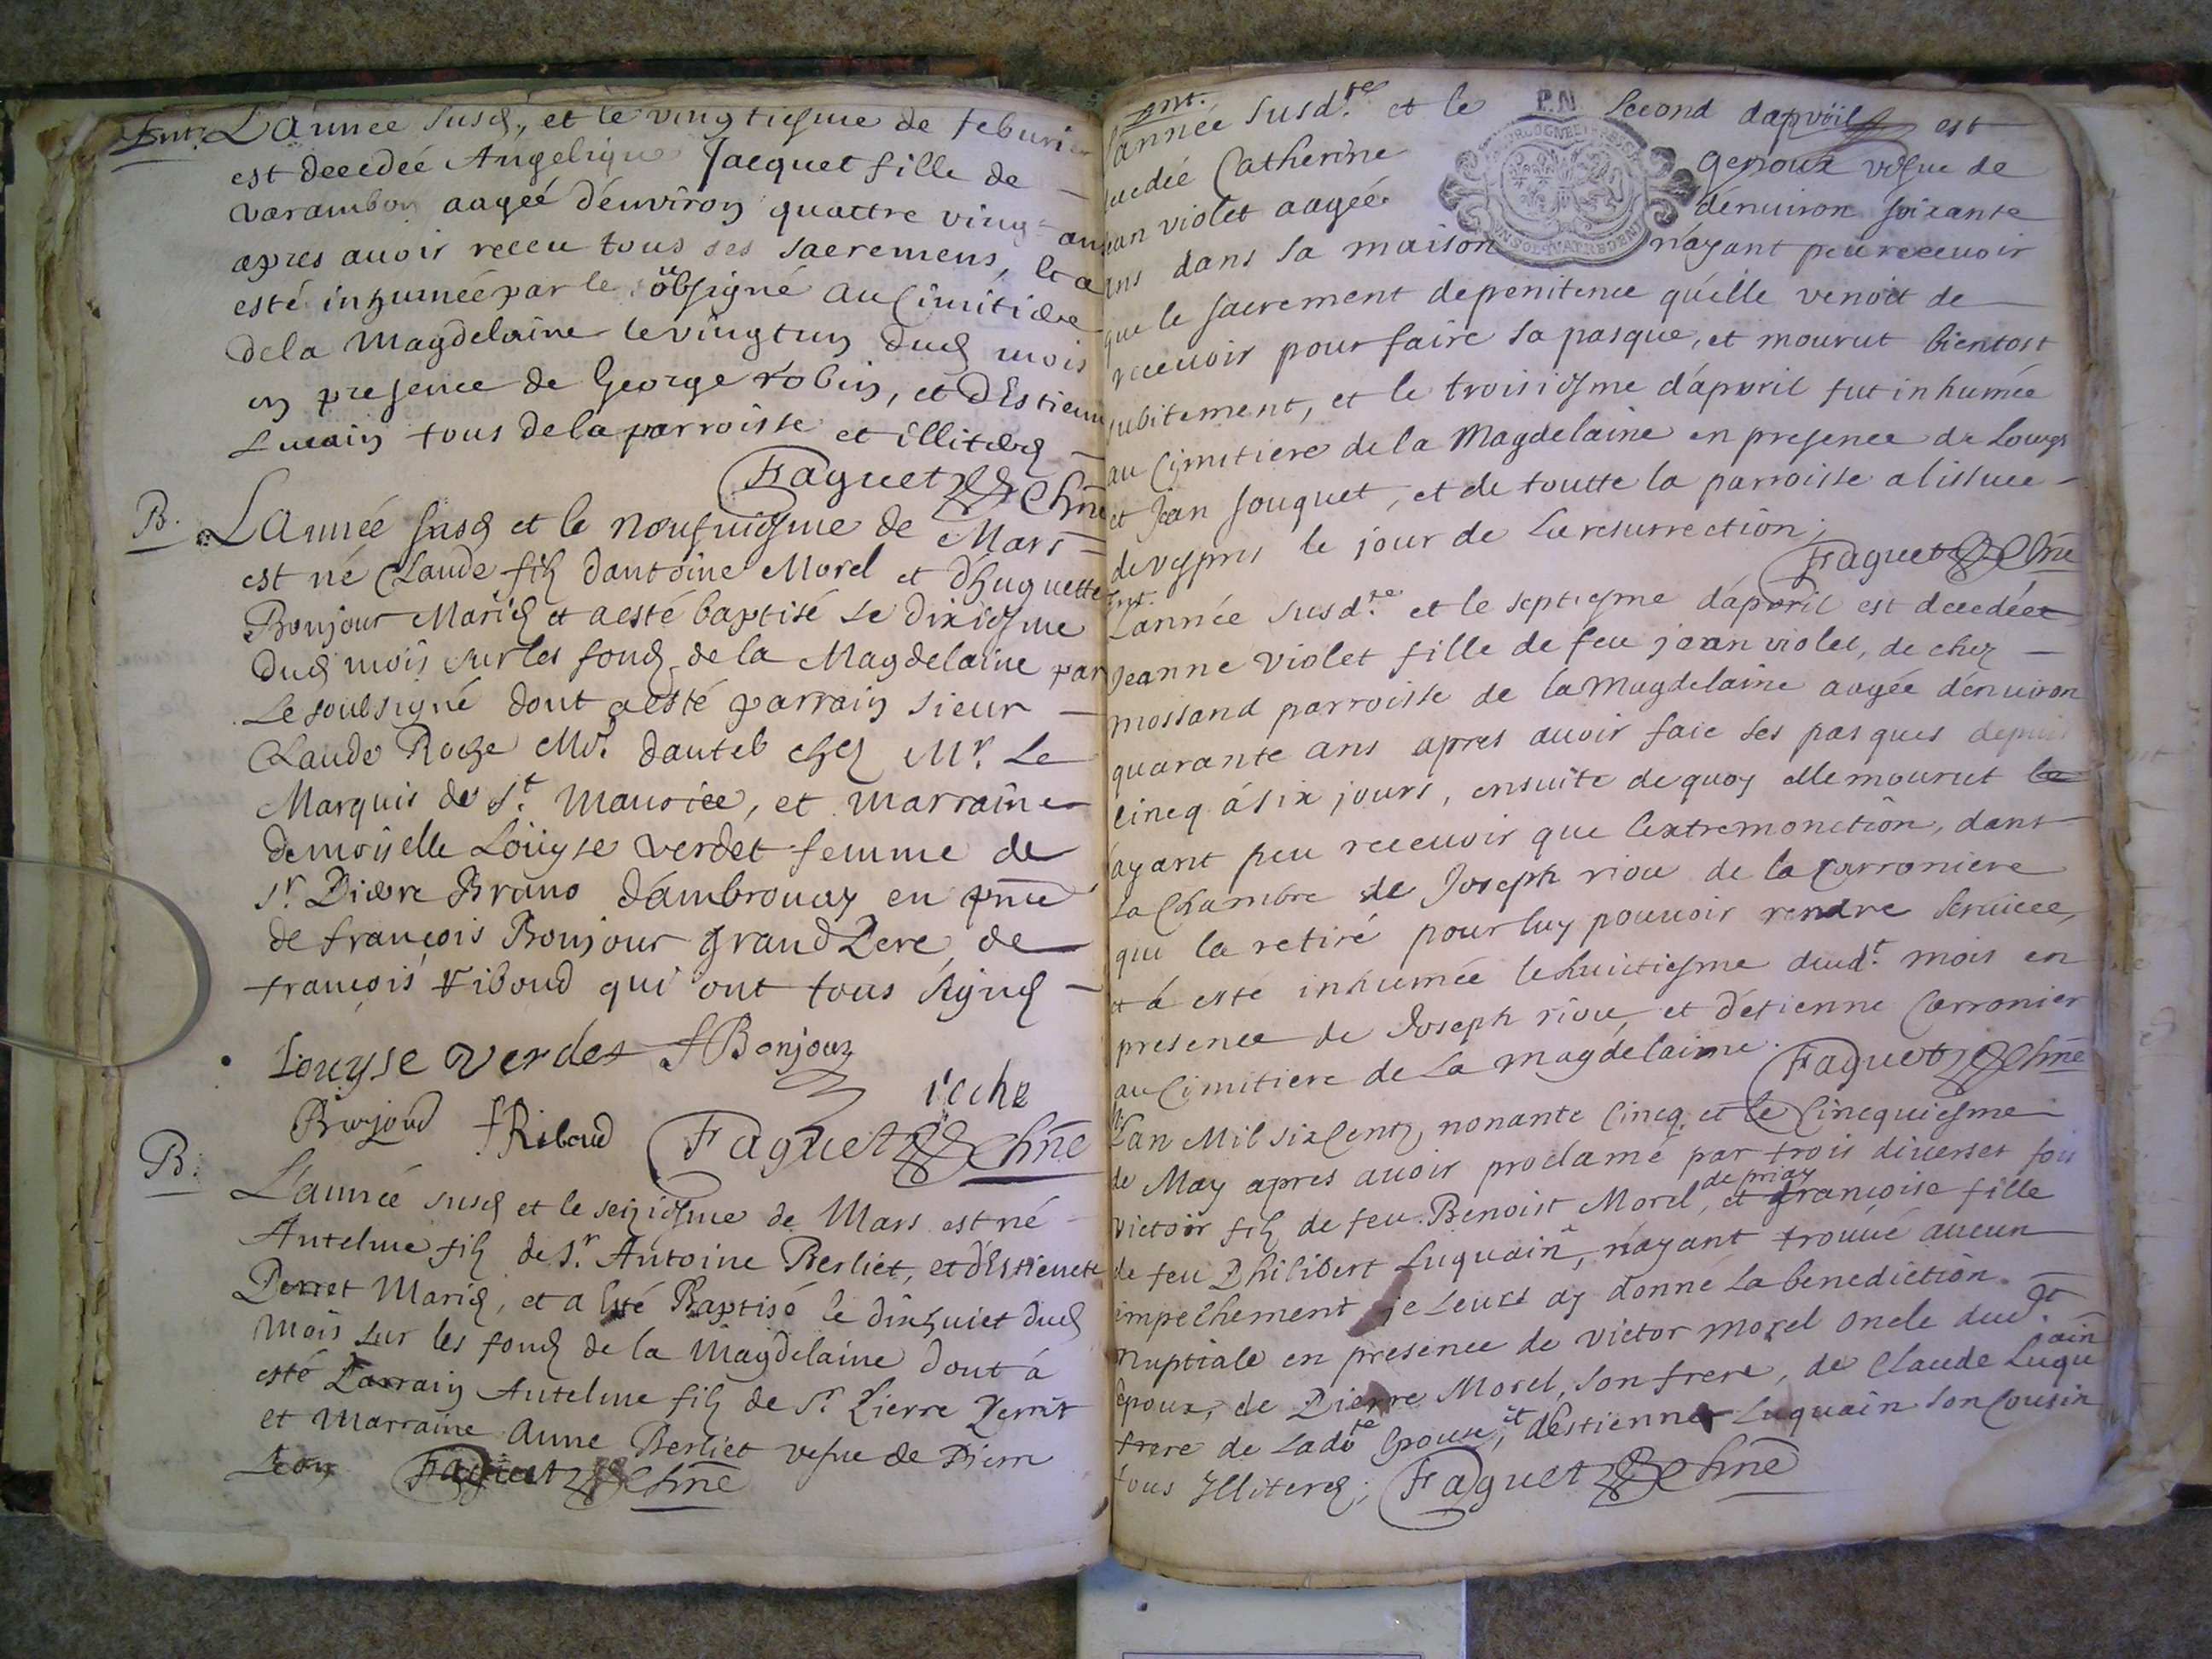 Ent. L'annee susd., et le vingtiesme de feburier
est decedeé Angelique Jacquet fille de
varambon aageé d'enuiron quattre vingt ans
apres auoir receu tous ses sacremens, et a
esté inhumeé par le soubsigné au Cimitiere
de la Magdelaine le vingtun dud mois
en presence de George robin, et d'Estienne
Lucain tous de la parroisse et illiterez
Faguet Chne
B. L'Année susd et le neufuiesme de Mars
est né Claude filz d'antoine Morel et d'huguette
Bonjour Mariez et a esté baptisé le dixiesme
dud mois sur les fondz de la Magdelaine par
le soubsigné dont a esté parrain sieur
Claude Roche Md. d'autel chez Mr. le
Marquis de St. Maurice, et marraine
demoiselle Loüyse verdet femme de
Sr. Pierre Bruno d'ambrouay en pnce
de françois Bonjour grand Pere, de
françois Riboud qui ont tous signez
Louyse verdet f Bonjour
roche
Burjoud f Riboud Faguet Chne
B. L'année susd et le seiziesme de Mars est né
Antelme filz de Sr. Antoine Berliet, et d'Estienette
Perret Mariez, et a esté Baptisé le dixhuict dud
mois sur les fondz de la Magdelaine dont à
esté Parrain Antelme filz de Sr Pierre Perret
et Marraine Anne Berliet vefue de Pierre
Leon Faguet Chne
Ent.
l'année susd.te et le P.N. second d'apvril est
decedée Catherine Genoux vefue de
Jean violet aageé d'enuiron soixante
ans dans sa maison n'ayant peu receuoir
que le sacrement de penitence qu'elle venoit de
receuoir pour faire sa pasque, et mourut bientost
subitement, et le troisiesme d'apvril fut inhumée
au Cymitiere de la Magdelaine en presence de Louys
et Jean Jouquet, et de toutte la parroisse a lissuee
de vespres le jour de La resurrection;
Faguet Chne
Ent.
L'année susd.te et le septiesme d'apvril est decedée
Jeanne violet fille de feu jean violet, de chez
mossand parroisse de la Magdelaine aagée d'enuiron
quarante ans apres auoir faic ses pasques depuis
cincq à six jours, ensuite de quoy elle mourut
n'ayant peu receuoir que l'extremonction, dans
la Chambre de Joseph riou de la Carroniere
qui la retiré pour luy pouuoir rendre seruicee,
et à esté inhumée le huictiesme dud.t mois en
presence de Joseph riou, et d'etienne Carronier
au Cimitiere de La magdelaine. Faguet Chne
L'an Mil six Centz nonante Cincq, et le Cincquiesme
de May apres auoir proclamé par trois diuerses fois
victoir filz de feu Benoist Morel, de priay et françoise fille
de feu Philibert Luquain, n'ayant trouué aucun
impechement je leurs ay donné la benediction
nuptiale en presence de victor morel oncle dud.t
epoux, de Pierre Morel, son frere, de Claude Luquain
frere de Ladte Epouse, et d'estienne Luquain son Cousin
tous Illiterez; Faguet Chne